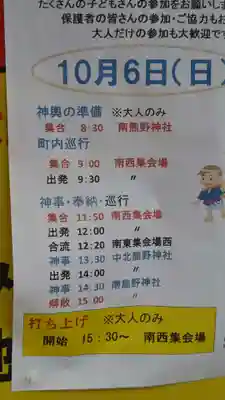 たくさんの子どもさんの参加をお願いします
保護者の皆さんの参加・ご協力もお
大人だけの参加も大歓迎です
10月6日(日)
神輿の準備 ※大人のみ
集合 8:30 南熊野神社
町内巡行
集合 9:00 南西集会場
出発 9:30 〃
神事・奉納・巡行
集合 11:50 南西集会場
出発 12:00 〃
合流 12:20 南東集会場西
神事 13:30 中北熊野神社
出発 14:00 〃
神事 14:30 南熊野神社
解散 15:00 〃
打ち上げ ※大人のみ
開始 15:30~ 南西集会場